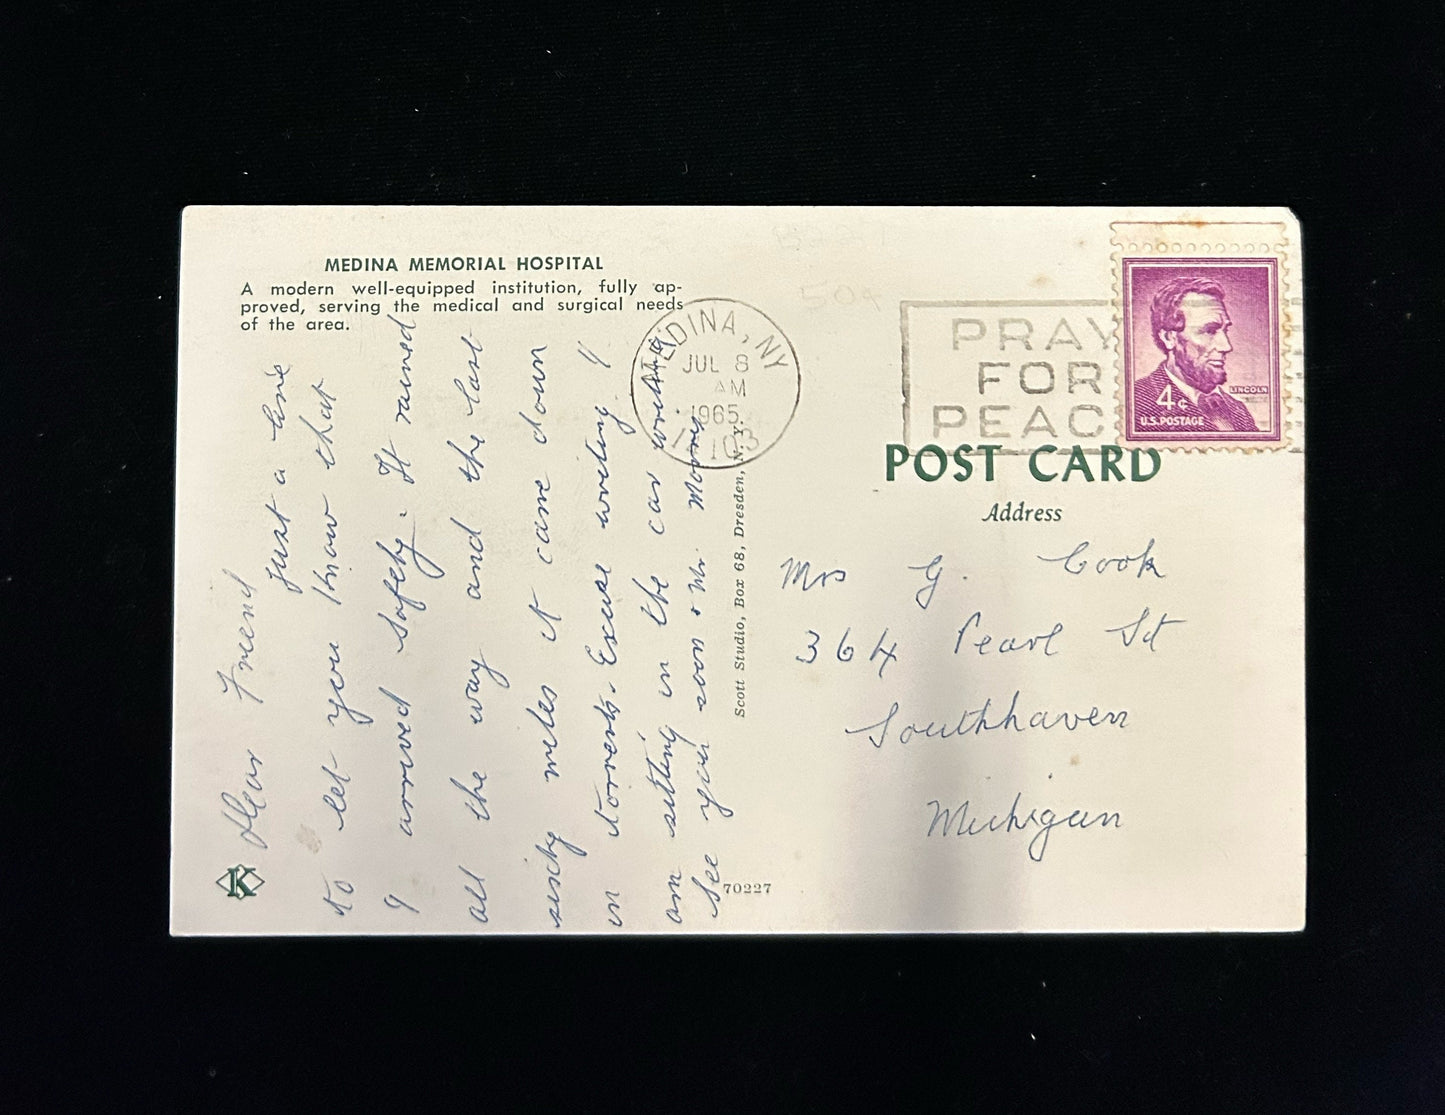 MEDINA MEMORIAL HOSPITAL
A modern well-equipped institution, fully ap-
proved, serving the medical and surgical needs
of the area.
Dear Friend
Just a line
to let you know that
I arrived safely. It rained
all the way and the last
sixty miles it came down
in torrents. Excuse writing. I
am sitting in the car
See you soon & Mr. Morris
K
Scott Studio, Box 68, Dresden, N.Y.
70227
MEDINA, NY
JUL 8
AM
1965
PRAY
FOR
PEAC
4¢
LINCOLN
U.S. POSTAGE
POST CARD
Address
Mrs G. Cook
364 Pearl St
Southhaven
Michigan